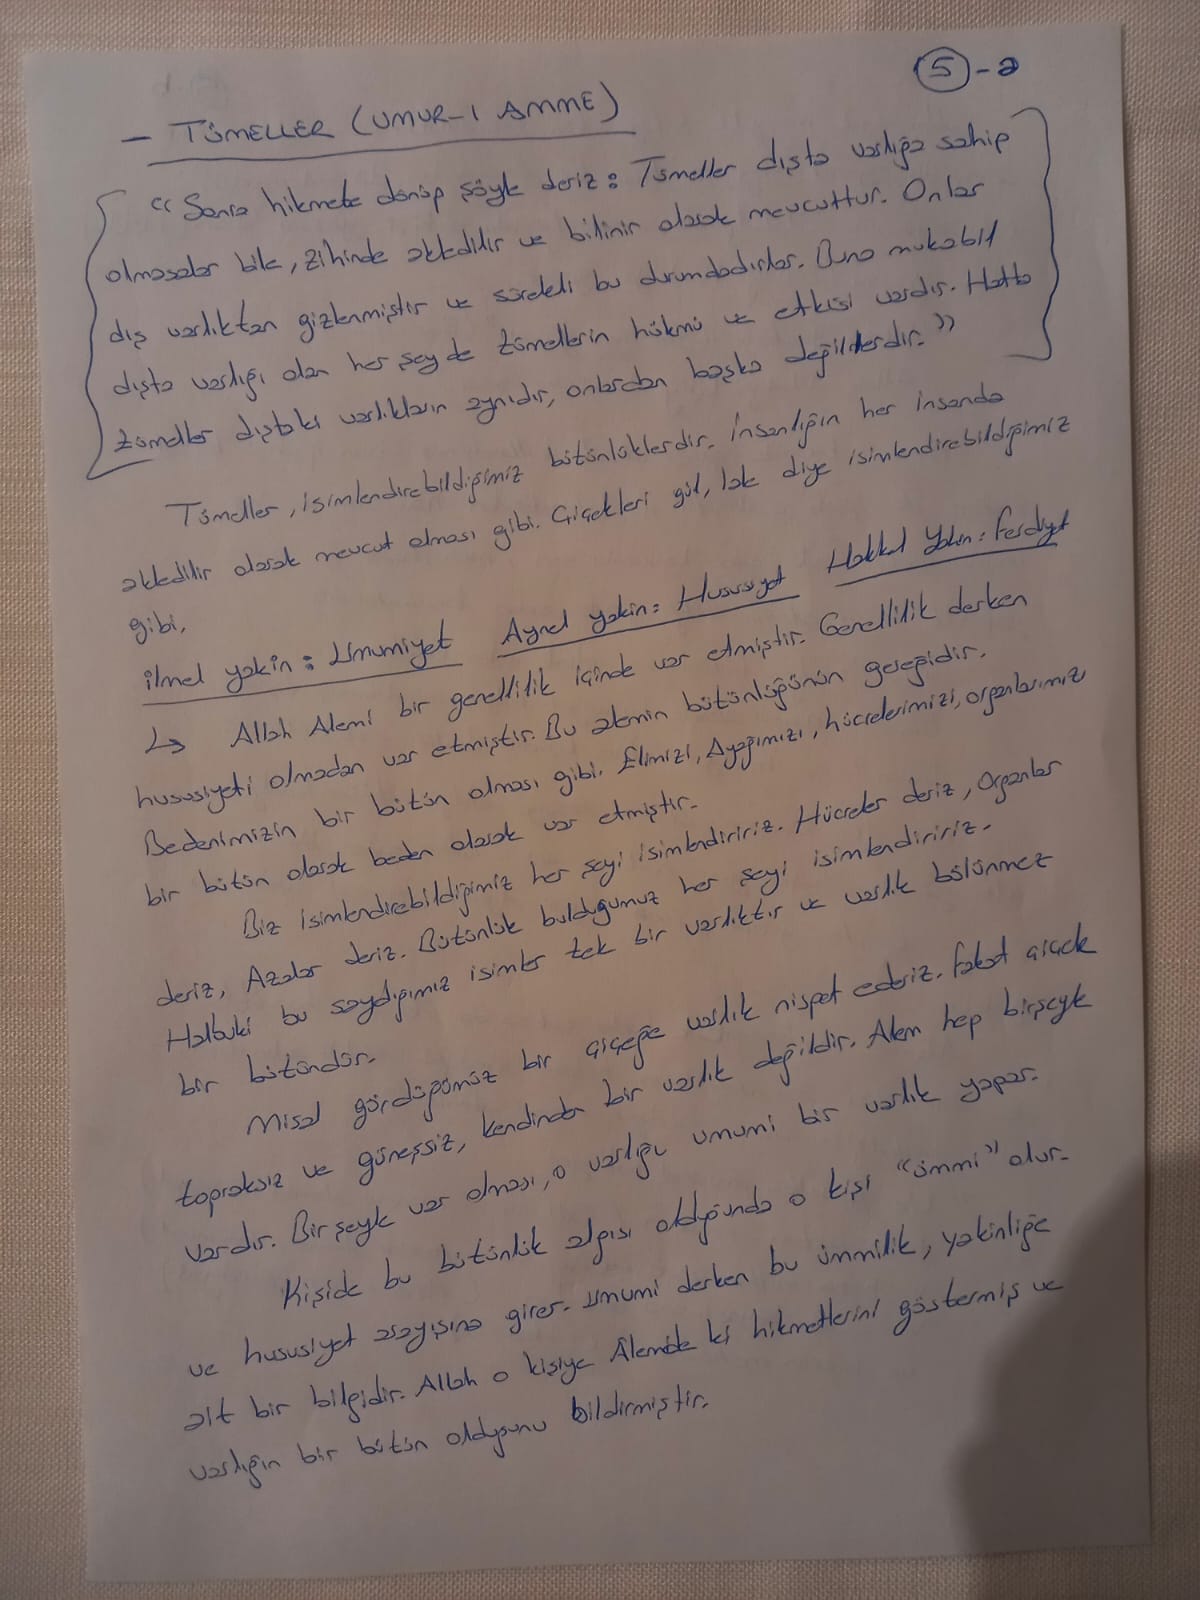 (5)-a
- TÜMELLER (UMUR-I AMME)
"Sonra hikmete dönüp şöyle deriz: Tümeller dışta varlığa sahip
olmasalar bile, zihinde akledilir ve bilinir olarak mevcuttur. Onlar
dış varlıktan gizlenmiştir ve sürekli bu durumdadırlar. Buna mukabil
dışta varlığı olan her şey de tümellerin hükmü ve etkisi vardır. Hatta
tümeller dıştaki varlıkların aynıdır, onlardan başka değillerdir."
Tümeller, isimlendirebildiğimiz bütünlüklerdir. İnsanlığın her insanda
akledilir olarak mevcut olması gibi. Çiçekleri gül, lale diye isimlendirebildiğimiz
gibi.
ilmel yakin: Umumiyet Aynel yakin: Hususiyet Hakkal Yakin: Ferdiyet
↳ Allah Alemi bir genellilik içinde var etmiştir. Genellilik derken
hususiyeti olmadan var etmiştir. Bu alemin bütünlüğünün gereğidir.
Bedenimizin bir bütün olması gibi. Elimizi, Ayağımızı, hücrelerimizi, organlarımız
bir bütün olarak beden olarak var etmiştir.
Biz isimlendirebildiğimiz her şeyi isimlendiririz. Hücreler deriz, Organlar
deriz, Azalar deriz. Bütünlük bulduğumuz her şeyi isimlendiririz.
Halbuki bu saydığımız isimler tek bir varlıktır ve varlık bölünmez
bir bütündür.
Misal gördüğümüz bir çiçeğe varlık nispet ederiz. Fakat çiçek
topraksız ve güneşsiz, kendinden bir varlık değildir. Alem hep birşeyle
vardır. Bir şeyle var olması, o varlığı umumi bir varlık yapar.
Kişide bu bütünlük algısı olduğunda o kişi "ümmi" olur.
ve hususiyet arayışına girer. Umumi derken bu ümmilik, yakinliğe
ait bir bilgidir. Allah o kişiye Âlemde ki hikmetlerini göstermiş ve
varlığın bir bütün olduğunu bildirmiştir.